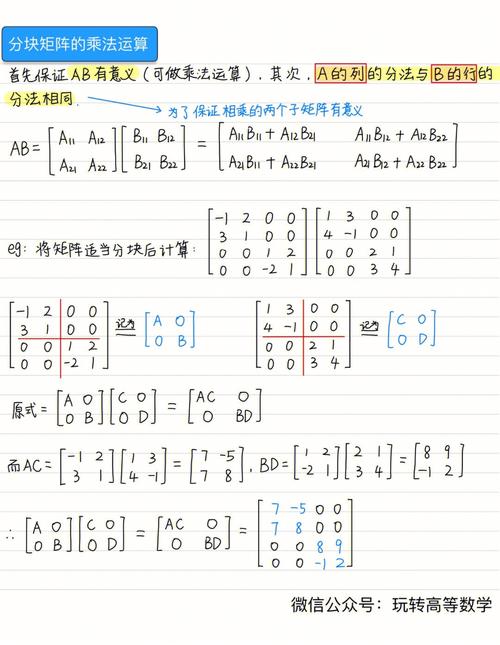 分块矩阵的乘法运算
首先保证AB有意义(可做乘法运算),其次,A的列的分法与B的行的
分法相同.
为了保证相乘的两个子矩阵有意义
AB= [A₁₁ A₁₂; A₂₁ A₂₂] [B₁₁ B₁₂; B₂₁ B₂₂] = [A₁₁B₁₁+A₁₂B₂₁ A₁₁B₁₂+A₁₂B₂₂; A₂₁B₁₁+A₂₂B₂₁ A₂₁B₁₂+A₂₂B₂₂]
eg: 将矩阵适当分块后计算: [-1 2 0 0; 3 1 0 0; 0 0 1 2; 0 0 -2 1] [1 3 0 0; 4 -1 0 0; 0 0 2 1; 0 0 3 4]
[-1 2 0 0; 3 1 0 0; 0 0 1 2; 0 0 -2 1] 记为 [A O; O B] [1 3 0 0; 4 -1 0 0; 0 0 2 1; 0 0 3 4] 记为 [C O; O D]
原式= [A O; O B] [C O; O D] = [AC O; O BD]
而AC= [-1 2; 3 1] [1 3; 4 -1] = [7 -5; 7 8], BD= [1 2; -2 1] [2 1; 3 4] = [8 9; -1 2]
∴ [A O; O B] [C O; O D] = [AC O; O BD] = [7 -5 0 0; 7 8 0 0; 0 0 8 9; 0 0 -1 2]
微信公众号:玩转高等数学